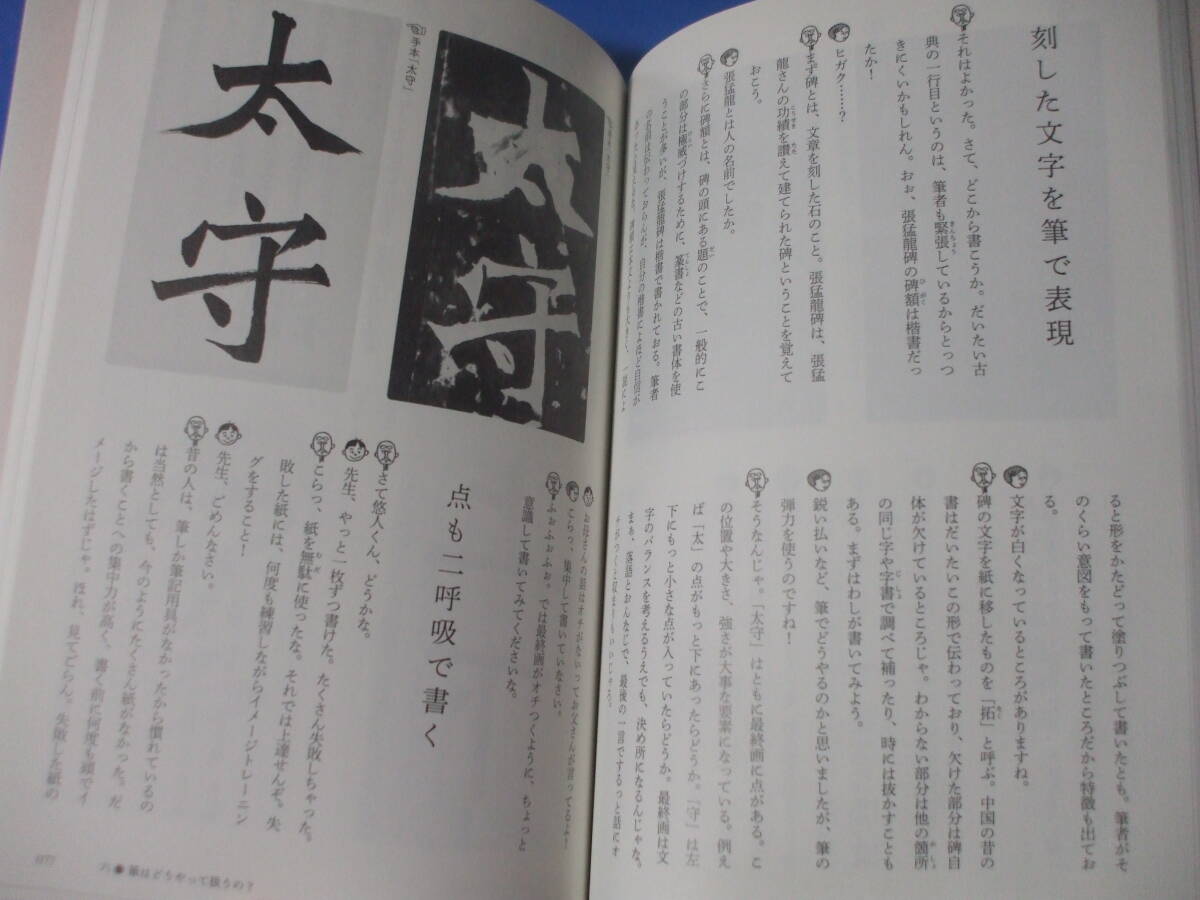 刻した文字を筆で表現
それはよかった。さて、どこから書こうか。だいたい古
典の一行目というのは、筆者も緊張しているからとっつ
きにくいかもしれん。おぉ、張猛龍碑の碑額は楷書だっ
たか!
ヒガク……?
まず碑とは、文章を刻した石のこと。張猛龍碑は、張猛
龍さんの功績を讃えて建てられた碑ということを覚えて
おこう。
張猛龍とは人の名前でしたか。
さらに碑額とは、碑の頭にある題のことで、一般的にこ
の部分は権威づけするために、篆書などの古い書体を使
うことが多いが、張猛龍碑は楷書で書かれておる。筆者
の名前は伝わっておらんが、自分の楷書によほど自信が
ると形をかたどって塗りつぶして書いたとも。筆者がそ
のくらい意図をもって書いたところだから特徴も出てお
る。
文字が白くなっているところがありますね。
碑の文字を紙に移したものを「拓」と呼ぶ。中国の昔の
書はだいたいこの形で伝わっており、欠けた部分は碑自
体が欠けているところじゃ。わからない部分は他の箇所
の同じ字や字書で調べて補ったり、時には抜かすことも
ある。まずはわしが書いてみよう。
鋭い払いなど、筆でどうやるのかと思いましたが、筆の
弾力を使うのですね!
そうなんじゃ。「太守」はともに最終画に点がある。こ
の位置や大きさ、強さが大事な要素になっている。例え
ば「太」の点がもっと下にあったらどうか。「守」は左
下にもっと小さな点が入っていたらどうか。最終画は文
字のバランスを考えるうえでも、決め所になるんじゃな。
まぁ、落語とおんなじで、最後の一言でするっと話にオ
太守
手本「太守」
太守
お母さんの話はオチがないってお父さんが言ってるよ!
こらっ、集中して書いていなさい。
ふぉふぉふぉ。では最終画がオチつくように、ちょっと
意識して書いてみてくださいな。
点も二呼吸で書く
さて悠人くん、どうかな。
先生、やっと一枚ずつ書けた。たくさん失敗しちゃった。
こらっ、紙を無駄に使ったな。それでは上達せんぞ。失
敗した紙には、何度も練習しながらイメージトレーニン
グをすること!
先生、ごめんなさい。
昔の人は、筆しか筆記用具がなかったから慣れているの
は当然としても、今のようにたくさん紙がなかった。だ
から書くことへの集中力が高く、書く前に何度も頭でイ
メージしたはずじゃ。ほれ、見てごらん。失敗した紙の
077
六●筆はどうやって扱うの?